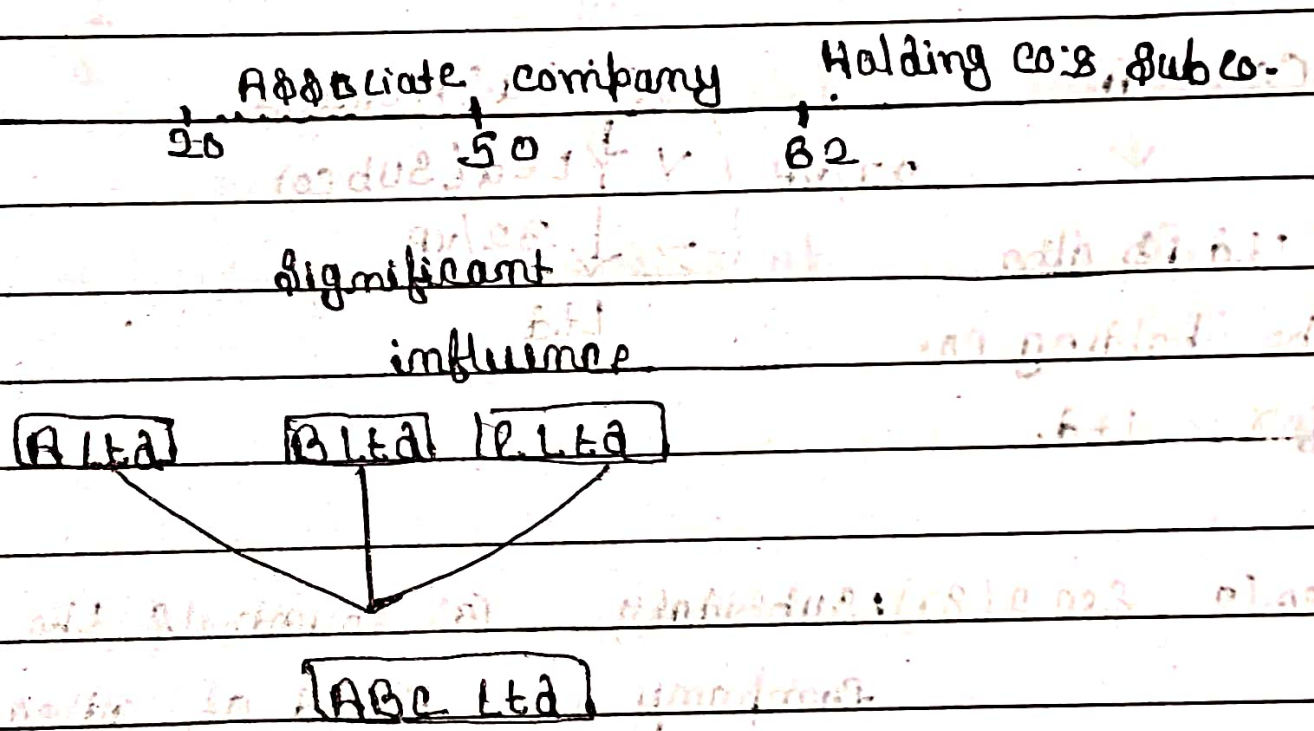 Associate company Holding co. & Sub co.
20 50 62
Significant
influence
A Ltd B Ltd C Ltd
ABC Ltd